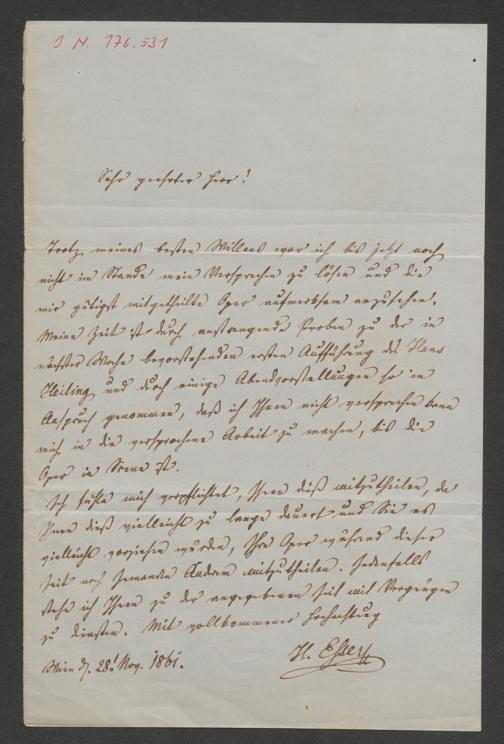 I. N. 176.531
Sehr geehrter Herr!
Trotz meines besten Willens war ich bis jetzt noch
nicht im Stande mein Versprechen zu lösen und die
mir gütigst mitgetheilte Oper aufmerksam anzusehen.
Meine Zeit ist durch anstrengende Proben zu der in
nächster Woche bevorstehenden ersten Aufführung des Hans
Heiling und durch einige Abendvorstellungen so in
Anspruch genommen, daß ich Ihnen nicht versprechen kann
mich in die versprochene Arbeit zu machen, bis die
Oper in Scene ist.
Ich fühle mich verpflichtet, Ihnen dieß mitzutheilen, da
Ihnen dieß vielleicht zu lange dauert und Sie es
vielleicht vorziehen würden, Ihre Oper während dieser
Zeit noch jemanden Andern mitzutheilen. Jedenfalls
stehe ich Ihnen zu der angegebenen Zeit mit Vergnügen
zu Diensten. Mit vollkommener Hochachtung
Wien d. 28t Nov. 1861.
H. Esser